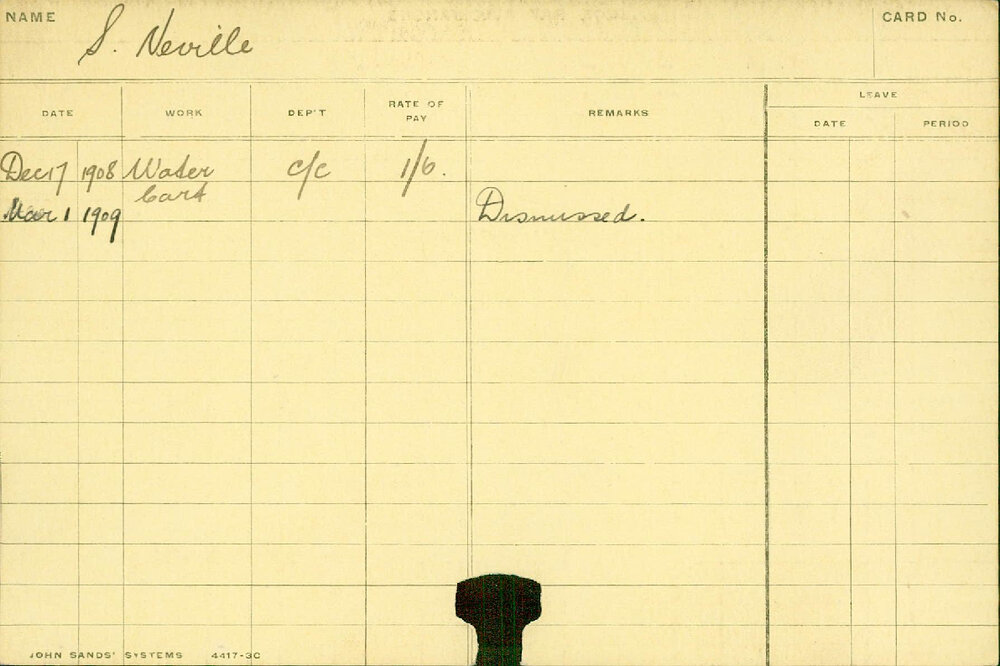 NAME S. Neville CARD No.
LEAVE
DATE WORK DEP'T RATE OF PAY REMARKS DATE PERIOD
Dec 17 1908 Water c/c 1/6.
Cart
Mar 1 1909 Dismissed.
JOHN SANDS' SYSTEMS 4417-3C